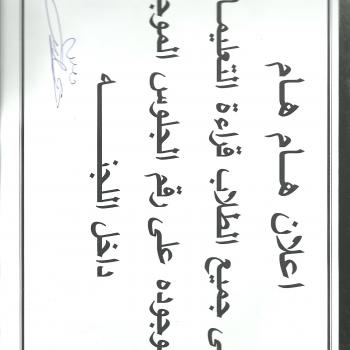 اعلان هـــام هـــام
ى جميع الطلاب قراءة التعليما
وجوده على رقم الجلوس الموج
داخل اللجنــــــه